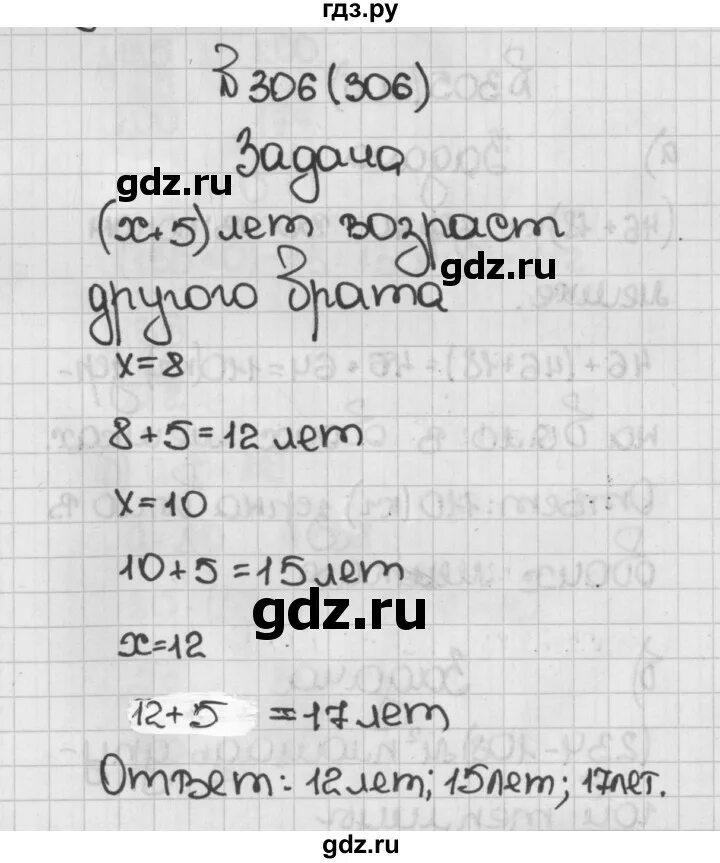 гдз.ру
№ 306 (306)
Задача
gdz.ru
(x+5) лет возраст
gdz.ru
другого брата
x=8
8+5=12 лет
x=10
10+5=15 лет
gdz.ru
x=12
12+5 =17 лет
Ответ: 12 лет; 15 лет; 17 лет.
gdz.ru